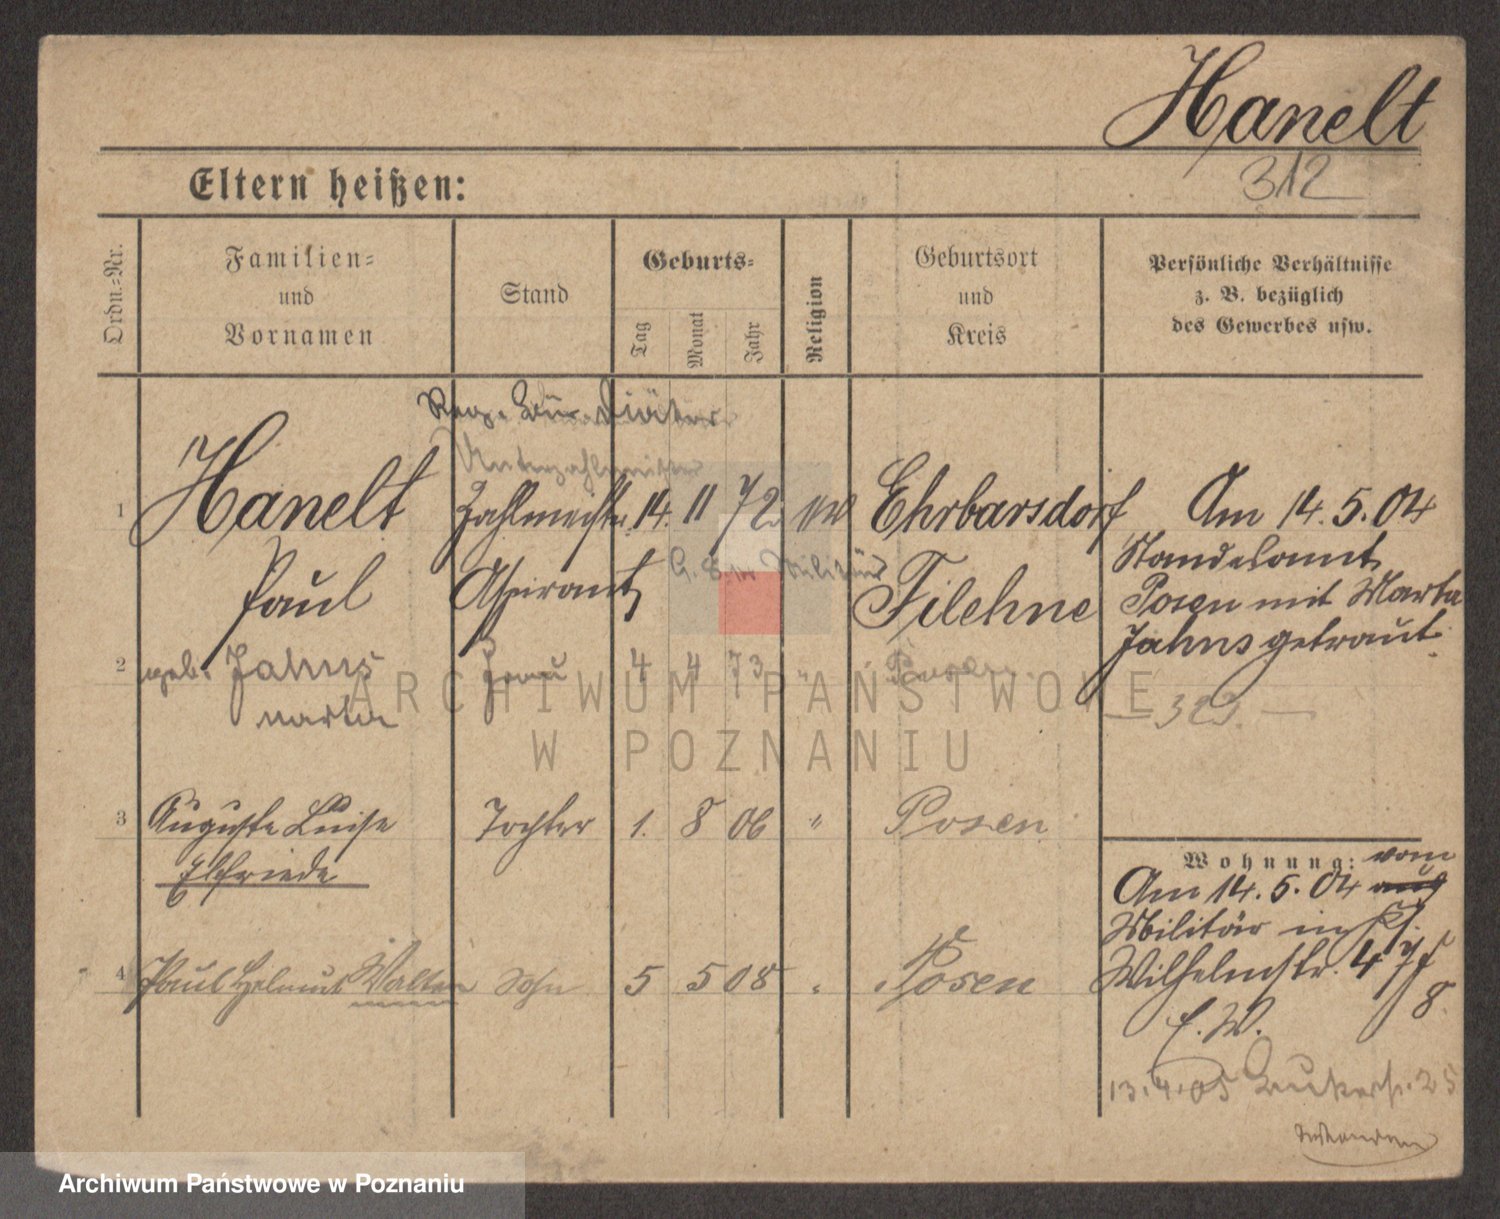 Hanelt
312
Eltern heißen:
Ordn.-Nr.
Familien-
und
Vornamen
Stand
Geburts-
Tag
Monat
Jahr
Religion
Geburtsort
und
Kreis
Persönliche Verhältnisse
z. B. bezüglich
des Gewerbes usw.
1 Hanelt Zahlmeister 14. 11 72 Ehrbarsdorf
Paul Aspirant Filehne
Am 14. 5. 04
Standesamt
Posen mit Marta
Jahns getraut.
2 geb. Jahns Frau 4 4 73 "
Marta
3 Auguste Luise Tochter 1. 8 06 " Posen
Elfriede
4 Paul Helmut Walter Sohn 5 5 08 " Posen
Wohnung: vom
Am 14. 5. 04
Militär in
Wilhelmstr. 4
E. W.
13. 4. 05
ARCHIWUM PAŃSTWOWE
W POZNANIU
Archiwum Państwowe w Poznaniu